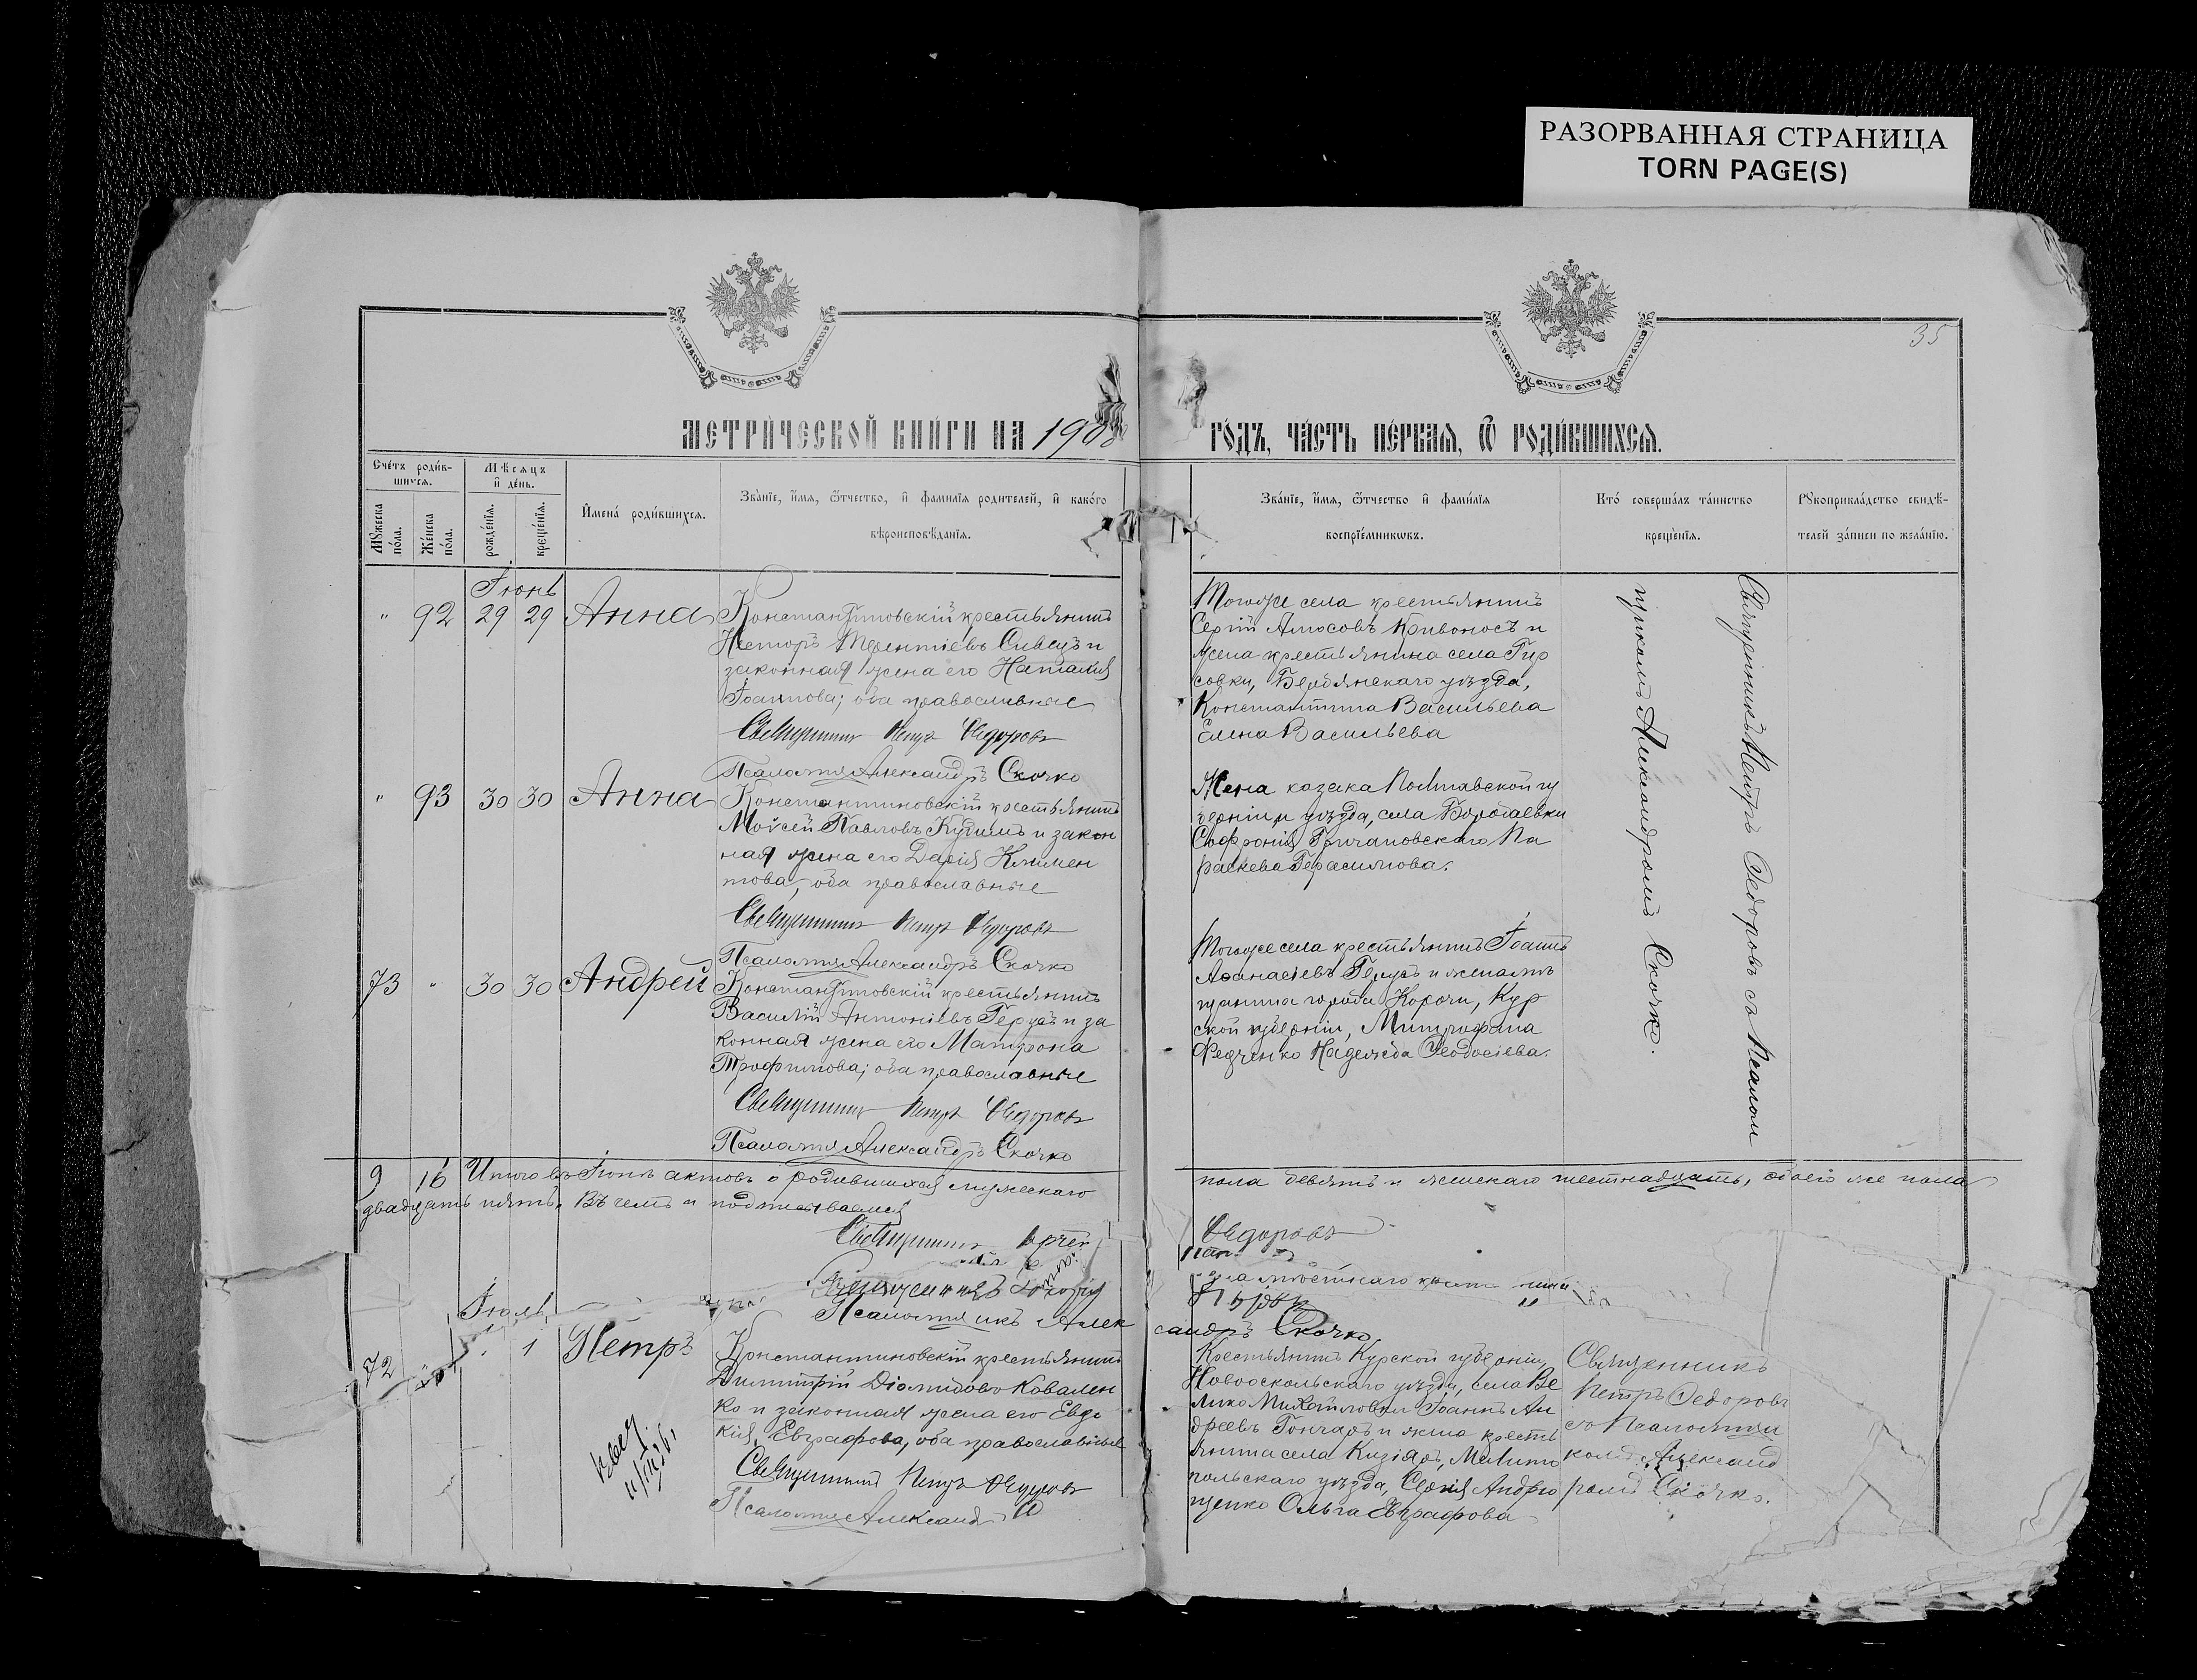 РАЗОРВАННАЯ СТРАНИЦА
TORN PAGE(S)
35
МЕТРИ́ЧЕСКОЙ КНИ́ГИ НА 190
ГО́ДЪ, ЧА́СТЬ ПЕ́РВАѦ, Ѿ РОДИ́ВШИХСѦ.
Сче́тъ роди́в-
шихсѧ.
Мѣсѧцъ
и҆ де́нь.
Мꙋжеска
по́ла.
Же́нска
по́ла.
рожде́нїѧ.
креще́нїѧ.
И҆мена̀ роди́вшихсѧ.
Зва́нїе, и҆́мѧ, ѻ҆́тчество, и҆ фами́лїѧ родителей, и҆ како́гѡ
вѣроисповѣ́данїѧ.
Зва́нїе, и҆́мѧ, ѻ҆́тчество и҆ фами́лїѧ
воспрїе́мникѡвъ.
Кто̀ соверша́лъ та́инство
креще́нїѧ.
Рꙋкоприкла́дство свидѣ́-
телей за́писи по жела́нїю.
Іюнь
" 92 29 29 Анна Константиновскій крестьянинъ
Несторъ Терентіевъ Сивецъ и
законная жена его Наталія
Іоаннова; оба православные
Священникъ Петръ Ѳедоровъ
Псаломщ Александръ Скочко
Тогоже села крестьянинъ
Сергій Амосовъ Кривоносъ и
жена крестьянина села Гир
совки, Бердянскаго уѣзда,
Константина Васильева
Елена Васильева
" 93 30 30 Анна Константиновскій крестьянинъ
Моисей Павловъ Кудимъ и закон
ная жена его Дарія Климен
това, оба православные
Священникъ Петръ Ѳедоровъ
Псаломщ Александръ Скочко
Жена казака Полтавской гу
берніи и уѣзда, села
Софронія Гричановскаго Па
раскева Герасимова.
73 " 30 30 Андрей Константиновскій крестьянинъ
Василій Антоніевъ Герусъ и за
конная жена его Матрона
Трофимова; оба православные
Священникъ Петръ Ѳедоровъ
Псаломщ Александръ Скочко
Тогоже села крестьянинъ Іоаннъ
Аѳанасіевъ Герусъ и жена мѣ
щанина города Корочи, Кур
ской губерніи, Митрофана
Федченко Надежда Ѳеодосіева.
Священникъ Петръ Ѳедоровъ съ Псалом
щикомъ Александромъ Скочко.
9 16 Итого въ Іюнѣ актовъ о родившихся мужескаго
пола девять и женскаго шестнадцать, обоего же пола
двадцать пять. Въ чемъ и подписываемся
Священникъ
Ѳедоровъ
Псаломщикъ Алек
сандръ Скочко
Іюль
72 " 1 Петръ Константиновскій крестьянинъ
Димитрій Діомидовъ Ковален
ко и законная жена его Евдо
кія Евграфова, оба православные
Священникъ Петръ Ѳедоровъ
Псаломщ Александ
Крестьянинъ Курской губерніи
Новооскольскаго уѣзда, села Ве
лико Михайловки Іоаннъ Ан
дреевъ Гончаръ и жена кресть
янина села Кизіяръ, Мелито
польскаго уѣзда, Сергія Андрю
щенко Ольга Евграфова
Священникъ
Петръ Ѳедоровъ
съ Псаломщи
комъ Александ
ромъ Скочко.